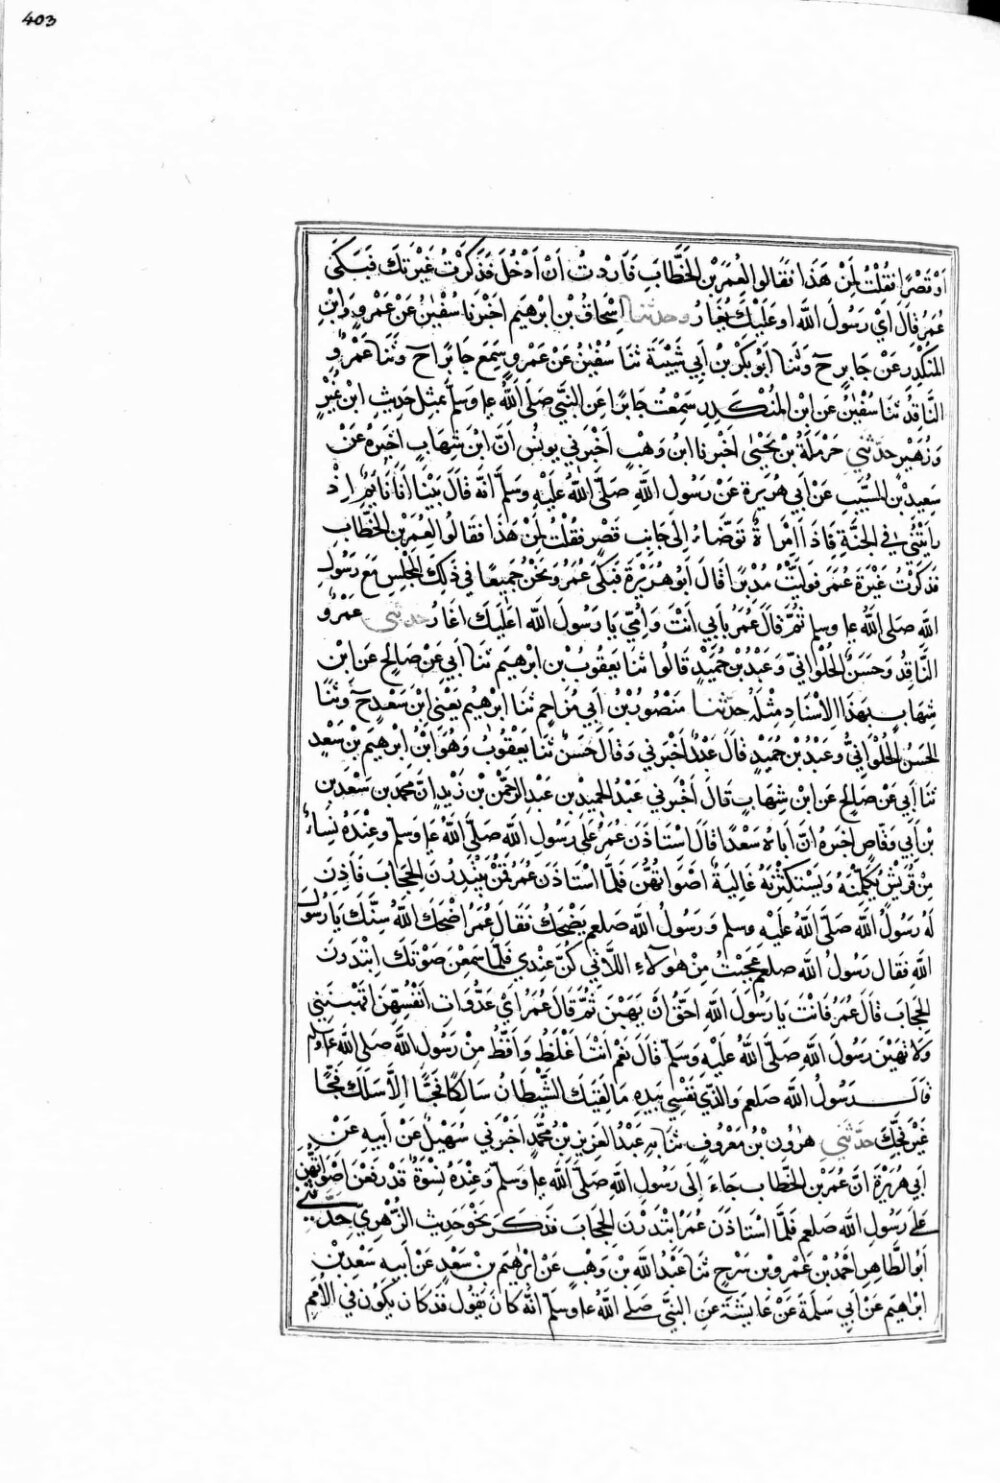 403
اَوْ قَصْرًا فَقُلْتُ لِمَنْ هَذَا فَقَالُوا لِعُمَرَ بْنِ الْخَطَّابِ فَاَرَدْتُ اَنْ اَدْخُلَ فَذَكَرْتُ غَيْرَتَكَ فَبَكَى
عُمَرُ قَالَ اَيْ رَسُولَ اللَّه اوَعَلَيْكَ يُغَارُ وحدثنا اِسْحَاقُ بْن ابْرهيم اخْبَرنَا سُفْيٰنُ عَنْ عَمْروٍ وَابْنِ
المُنْكَدِر عَنْ جَابِرٍ حَ وثَنَا ابُو بَكْرِ بْنُ اَبِي شَيْبَةَ ثنا سُفْيٰنُ عَنْ عَمْروٍ سَمِعَ جَابِرًا حَ وَثَنَا عَمْرٌو
النَّاقِدُ ثَنَا سُفْيٰنُ عَنِ ابْنِ المُنْكَدِرِ سَمِعْتُ جَابِرًا عَنِ النَّبِيِّ صَلَّى اللَّهُ ع‍ا وَسَلَّم بمثل حَدِيثِ ابْنِ نُمَيْرٍ
وَزُهَيْرٍ حَدَّثَنِي حَرْمَلَةُ بْنُ يَحْيٰى اخْبَرنَا ابنُ وَهْبٍ اخْبَرنِي يونُس اَنَّ ابْنَ شِهَابٍ اخبَرهُ عَنْ
سَعِيدِ بْنِ المُسَيَّبِ عَنْ اَبِي هُرَيرةَ عَنْ رَسُولِ اللَّهِ صَلَّى اللَّهُ عَلَيْهِ وَسَلَّم انّه قَالَ بَيْنَا اَنَا نَايمٌ اِذْ
رَايْتُنِي فِي الجَنَّةِ فَاِذَا امْرَاةٌ تَوَضَّاءُ اِلَى جَانِبِ قَصْرٍ فَقُلْتُ لِمَنْ هَذَا فَقَالُوا لِعُمَرَ بْنِ الخَطَّابِ
فَذَكَرْتُ غَيْرَةَ عُمَرَ فَوَلَّيْتُ مُدْبِرًا قَالَ اَبُو هُرَيْرَةَ فَبَكَى عُمَرُ وَنَحْنُ جَمِيعًا فِي ذَلِكَ المَجْلِسِ مَعَ رَسُولِ
اللَّه صَلى اللَّهُ ع‍ا وسلم ثُمَّ قَالَ عُمَرُ بِاَبِي اَنْتَ وَاُمِّي يَا رَسُولَ اللَّه اعَلَيكَ اغَارُ حدثني عَمْرٌو
النَّاقِدُ وَحَسَنٌ الحُلْوَانِيُّ وَعَبْدُ بْنُ حُمَيْدٍ قَالُوا ثنا يَعْقُوبُ بْن ابْرهيمَ ثنَا اَبِي عَنْ صَالِحٍ عَنِ ابْنِ
شِهَابٍ بِهَذَا الاِسْنَادِ مِثْلَهُ حَدَّثَنا مَنْصُورُ بْنُ اَبِي مُزَاحِمٍ ثَنا ابْرهِيمُ يَعْنِي ابْنَ سَعْدٍ حَ وثَنَا
الحَسَنُ الحُلْوَانِيُّ وعَبْدُ بْنُ حُمَيْدٍ قَالَ عَبْدٌ اَخْبَرَنِي وَقَالَ حَسَنٌ ثَنَا يَعْقُوبُ وَهُوَ ابْنُ ابْرهِيمَ بْنِ سَعْدٍ
ثَنَا اَبِي عَنْ صَالِحٍ عَنِ ابْنِ شِهَابٍ قَالَ اَخْبَرَنِي عَبْدُ الحَمِيدِ بْن عَبْدِ الرَّحْمٰنِ بْنِ زَيْدٍ اَنَّ مُحَمَّدَ بن سَعْدِ بن
بْنِ اَبِي وَقَّاصٍ اخْبَرهُ اَنَّ اَبَاهُ سَعْدًا قَالَ اسْتَاذَنَ عُمَرُ عَلَى رَسُولِ اللَّه صَلَّى اللَّهُ ع‍ا وَسلم وَعِنْدَهُ نِسَاءٌ
مِنْ قُرَيْشٍ يُكَلِّمْنَهُ وَيَسْتَكْثِرْنَهُ عَالِيَةً اَصْوَاتُهُنَّ فَلَمَّا اسْتَاذَنَ عُمَرُ قُمْنَ يَبْتَدِرْنَ الحِجَابَ فَاَذِنَ
لَهُ رَسُولُ اللَّه صَلَّى اللَّهُ عَلَيْهِ وسلم وَرَسُولُ اللَّه صلعم يَضْحَكُ فَقَالَ عُمَرُ اضْحَكَ اللَّهُ سِنَّكَ يَا رَسُولَ
اللَّهِ فَقَالَ رَسُولُ اللَّه صلعم عَجِبْتُ مِنْ هٰوُلَاءِ اللَّاتِي كُنَّ عِنْدِي فَلَمَّا سَمِعْنَ صَوْتَكَ ابْتَدَرْنَ
الحِجَابَ قَالَ عُمَرُ فَانْتَ يَا رَسُولَ اللَّهِ اَحَقُّ اَنْ يَهَبْنَ ثُمَّ قَالَ عُمَرُ اَيْ عَدُوَّاتِ اَنْفُسِهِنَّ اَتَهَبْنَنِي
وَلَا تَهَبْنَ رَسُولَ اللَّهِ صَلَّى اللَّهُ عَلَيْهِ وَسَلَّم قَالَ نَعَمْ انْتَ اَغْلَظُ وَاَفَظُّ مِنْ رَسُولِ اللَّه صَلى اللَّه ع‍ا وسلم
قَالَ رَسُولُ اللَّه صلعم وَالَّذِي نَفْسِي بِيَدِهِ مَا لَقِيَكَ الشَّيْطَانُ سَالِكًا فَجًّا اِلَّا سَلَكَ فَجًّا
غَيْرَ فَجِّكَ حَدَّثَنِي هٰرُونُ بْنُ مَعْرُوفٍ ثنَا بِهِ عَبْدُ العَزِيزِ بْنُ مُحَمَّدٍ اَخْبَرَنِي سُهَيْلٌ عَنْ اَبِيهِ عَنْ
اَبِي هُرَيْرَةَ اَنَّ عُمَرَ بْن الخَطَّابِ جَاءَ اِلَى رَسُولِ اللَّهِ صَلَّى اللَّه ع‍ا وَسَلَّم وَعِنْدَهُ نِسْوَةٌ قَدْ رَفَعْنَ اَصْوَاتَهُنَّ
عَلَى رَسُولِ اللَّه صلعم فَلَمَّا اسْتَاذَنَ عُمَرُ ابْتَدَرْنَ الحِجَابَ فَذَكَرَ نَحْوَ حَدِيثِ الزُّهْرِيِّ حَدَّثَنِي
اَبُو الطَّاهِرِ اَحْمَدُ بْن عَمْرِو بْنِ سَرْحٍ ثَنَا عَبْدُ اللَّهِ بْن وَهْبٍ عَنْ ابْرٰهِيمَ بْنِ سَعْدٍ عَنْ اَبِيهِ سَعْدِ بْنِ
ابْرَاهِيم عَنْ اَبِي سَلَمَةَ عَنْ عَايشَةَ عَنِ النَّبِيِّ صَلَى اللَّهُ ع‍ا وسَلَّم اَنَّه كَانَ يَقُولُ قَدْ كَانَ يَكُونُ فِي الْاُمَمِ